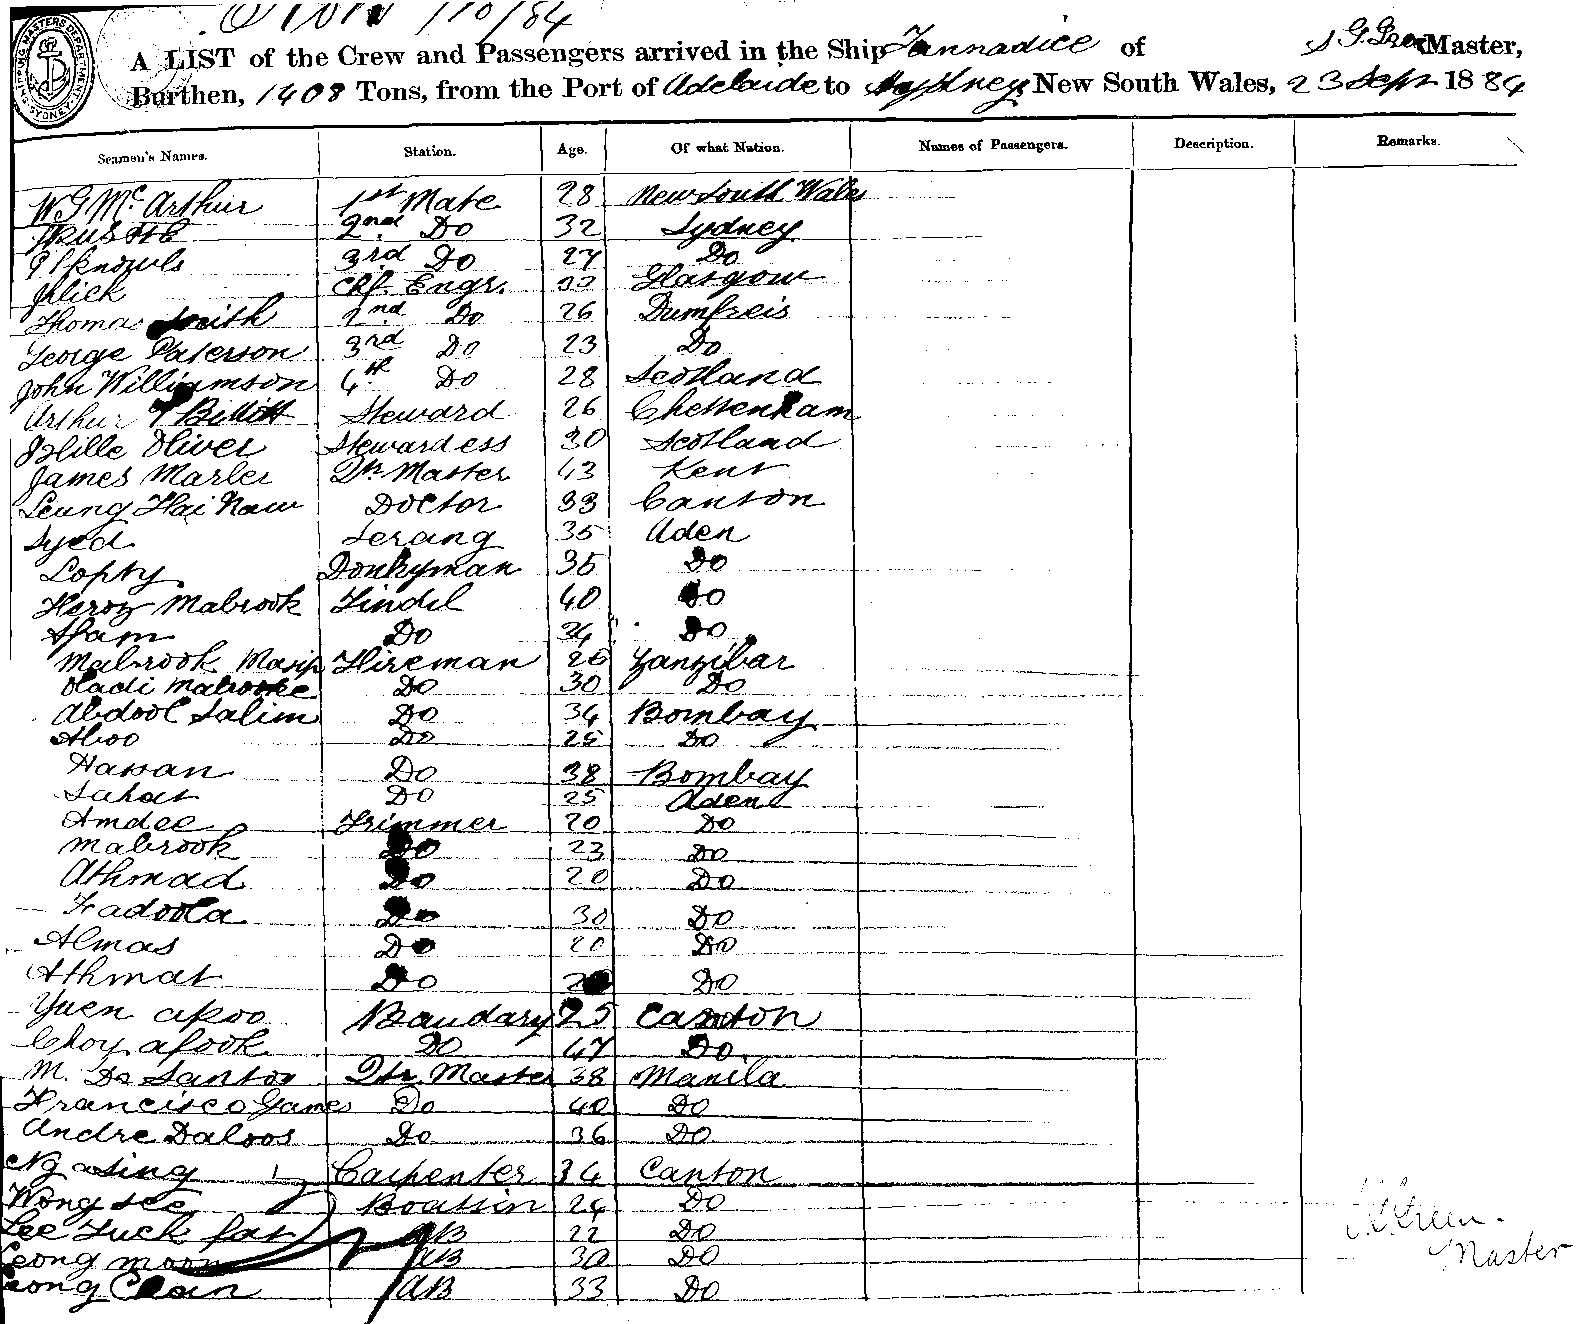 110/84
A LIST of the Crew and Passengers arrived in the Ship Tannadice of S G Green Master,
Burthen, 1408 Tons, from the Port of Adelaide to Sydney New South Wales, 23 Sept 1884
Seamen's Names. Station. Age. Of what Nation. Names of Passengers. Description. Remarks.
W G McArthur 1st Mate 28 New South Wales
2nd Do 32 Sydney
Knowls 3rd Do 27 Do
Chf. Engr. 33 Glasgow
Thomas Smith 2nd Do 26 Dumfreis
George Paterson 3rd Do 23 Do
John Williamson 4th Do 28 Scotland
Arthur Steward 26 Cheltenham
Oliver Stewardess 30 Scotland
James Marler Qr Master 43 Kent
Leung Hai Naw Doctor 33 Canton
Syed Serang 35 Aden
Lopty Donkyman 35 Do
Heroz Mabrook Tindel 40 Do
Do 34 Do
Mabrook Fireman 26 Zanzibar
Hadi Mabrooke Do 30 Do
Abdool Salim Do 34 Bombay
Aboo Do 25 Do
Hassan Do 38 Bombay
Sahat Do 25 Aden
Amdee Trimmer 20 Do
Mabrook Do 23 Do
Athmad Do 20 Do
Fadoola Do 30 Do
Almas Do 20 Do
Athmat Do Do
Yuen Akoo Bandary 25 Canton
Choy Afook Do 47 Do
M. Do Santos Qtr. Master 38 Manila
Francisco Games Do 40 Do
Andre Daloos Do 36 Do
Ng Asing Carpenter 34 Canton
Wong See Boatsin 24 Do
Lee Tuck fat AB 22 Do
Leong moon AB 30 Do
Leong AB 33 Do
Green.
Master